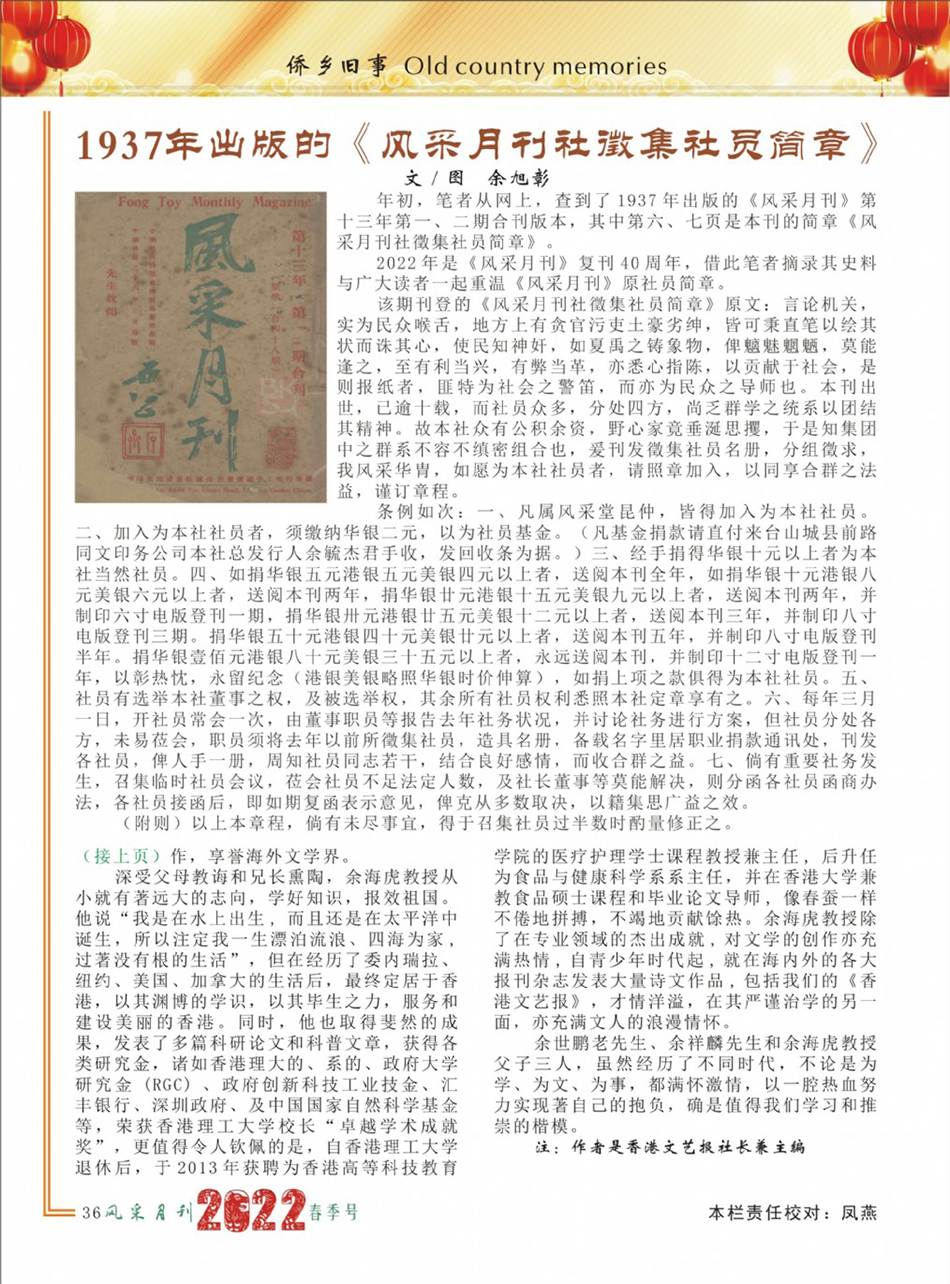 侨乡旧事 Old country memories
1937年出版的《风采月刊社徵集社员简章》
文 / 图　余旭彰
Fong Toy Monthly Magazine
風采月刊
第十三年第一、二期合刊
先生收閱
年初，笔者从网上，查到了1937年出版的《风采月刊》第
十三年第一、二期合刊版本，其中第六、七页是本刊的简章《风
采月刊社徵集社员简章》。
2022年是《风采月刊》复刊40周年，借此笔者摘录其史料
与广大读者一起重温《风采月刊》原社员简章。
该期刊登的《风采月刊社徵集社员简章》原文：言论机关，
实为民众喉舌，地方上有贪官污吏土豪劣绅，皆可秉直笔以绘其
状而诛其心，使民知神奸，如夏禹之铸象物，俾魑魅魍魉，莫能
逢之，至有利当兴，有弊当革，亦悉心指陈，以贡献于社会，是
则报纸者，匪特为社会之警笛，而亦为民众之导师也。本刊出
世，已逾十载，而社员众多，分处四方，尚乏群学之统系以团结
其精神。故本社众有公积余资，野心家竟垂涎思攫，于是知集团
中之群系不容不缜密组合也，爰刊发徵集社员名册，分组徵求，
我风采华胄，如愿为本社社员者，请照章加入，以同享合群之法
益，谨订章程。
条例如次：一、凡属风采堂昆仲，皆得加入为本社社员。
二、加入为本社社员者，须缴纳华银二元，以为社员基金。（凡基金捐款请直付来台山城县前路
同文印务公司本社总发行人余毓杰君手收，发回收条为据。）三、经手捐得华银十元以上者为本
社当然社员。四、如捐华银五元港银五元美银四元以上者，送阅本刊全年，如捐华银十元港银八
元美银六元以上者，送阅本刊两年，捐华银廿元港银十五元美银九元以上者，送阅本刊两年，并
制印六寸电版登刊一期，捐华银卅元港银廿五元美银十二元以上者，送阅本刊三年，并制印八寸
电版登刊三期。捐华银五十元港银四十元美银廿元以上者，送阅本刊五年，并制印八寸电版登刊
半年。捐华银壹佰元港银八十元美银三十五元以上者，永远送阅本刊，并制印十二寸电版登刊一
年，以彰热忱，永留纪念（港银美银略照华银时价伸算），如捐上项之款俱得为本社社员。五、
社员有选举本社董事之权，及被选举权，其余所有社员权利悉照本社定章享有之。六、每年三月
一日，开社员常会一次，由董事职员等报告去年社务状况，并讨论社务进行方案，但社员分处各
方，未易莅会，职员须将去年以前所徵集社员，造具名册，备载名字里居职业捐款通讯处，刊发
各社员，俾人手一册，周知社员同志若干，结合良好感情，而收合群之益。七、倘有重要社务发
生，召集临时社员会议，莅会社员不足法定人数，及社长董事等莫能解决，则分函各社员函商办
法，各社员接函后，即如期复函表示意见，俾克从多数取决，以籍集思广益之效。
（附则）以上本章程，倘有未尽事宜，得于召集社员过半数时酌量修正之。
（接上页）作，享誉海外文学界。
深受父母教诲和兄长熏陶，余海虎教授从
小就有著远大的志向，学好知识，报效祖国。
他说“我是在水上出生，而且还是在太平洋中
诞生，所以注定我一生漂泊流浪、四海为家，
过著没有根的生活”，但在经历了委内瑞拉、
纽约、美国、加拿大的生活后，最终定居于香
港，以其渊博的学识，以其毕生之力，服务和
建设美丽的香港。同时，他也取得斐然的成
果，发表了多篇科研论文和科普文章，获得各
类研究金，诸如香港理大的、系的、政府大学
研究金 (RGC) 、政府创新科技工业技金、汇
丰银行、深圳政府、及中国国家自然科学基金
等，荣获香港理工大学校长“卓越学术成就
奖”，更值得令人钦佩的是，自香港理工大学
退休后，于2013年获聘为香港高等科技教育
学院的医疗护理学士课程教授兼主任，后升任
为食品与健康科学系系主任，并在香港大学兼
教食品硕士课程和毕业论文导师，像春蚕一样
不倦地拼搏，不竭地贡献馀热。余海虎教授除
了在专业领域的杰出成就，对文学的创作亦充
满热情，自青少年时代起，就在海内外的各大
报刊杂志发表大量诗文作品，包括我们的《香
港文艺报》，才情洋溢，在其严谨治学的另一
面，亦充满文人的浪漫情怀。
余世鹏老先生、余祥麟先生和余海虎教授
父子三人，虽然经历了不同时代，不论是为
学、为文、为事，都满怀激情，以一腔热血努
力实现著自己的抱负，确是值得我们学习和推
崇的楷模。
注：作者是香港文艺报社长兼主编
36 风采月刊 2022 春季号
本栏责任校对：凤燕